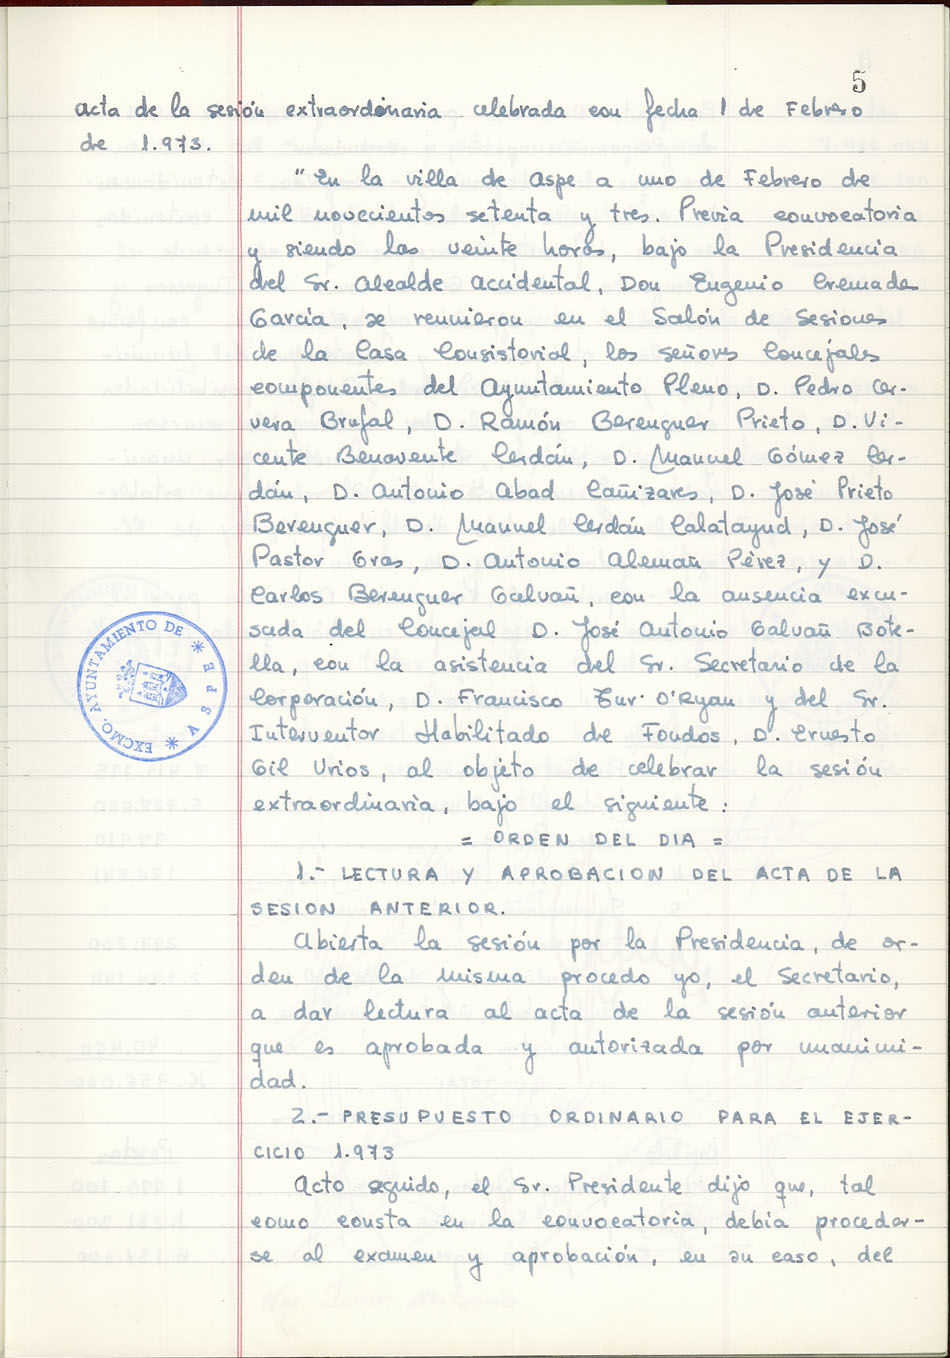 5
acta de la sesión extraordinaria celebrada con fecha 1 de Febrero
de 1.973.
"En la villa de Aspe a uno de Febrero de
mil novecientos setenta y tres. Previa convocatoria
y siendo las veinte horas, bajo la Presidencia
del Sr. Alcalde Accidental, Don Eugenio Cremades
García, se reunieron en el Salón de Sesiones
de la Casa Consistorial, los señores Concejales
componentes del Ayuntamiento Pleno, D. Pedro Cer-
vera Brufal, D. Ramón Berenguer Prieto, D. Vi-
cente Benavente Cerdán, D. Manuel Gómez Cer-
dán, D. Antonio Abad Cañizares, D. José Prieto
Berenguer, D. Manuel Cerdán Calatayud, D. José
Pastor Gras, D. Antonio Alemañ Pérez, y D.
Carlos Berenguer Galvañ, con la ausencia excu-
sada del Concejal D. José Antonio Galvañ Bote-
lla, con la asistencia del Sr. Secretario de la
Corporación, D. Francisco Zur. O'Ryan y del Sr.
Interventor Habilitado de Fondos, D. Ernesto
Gil Urios, al objeto de celebrar la sesión
extraordinaria, bajo el siguiente:
= ORDEN DEL DIA =
1.- LECTURA Y APROBACION DEL ACTA DE LA
SESION ANTERIOR.
Abierta la sesión por la Presidencia, de or-
den de la misma procedo yo, el Secretario,
a dar lectura al acta de la sesión anterior
que es aprobada y autorizada por unanimi-
dad.
2.- PRESUPUESTO ORDINARIO PARA EL EJER-
CICIO 1.973
Acto seguido, el Sr. Presidente dijo que, tal
como consta en la convocatoria, debía proceder-
se al examen y aprobación, en su caso, del
EXCMO. AYUNTAMIENTO DE * ASPE *